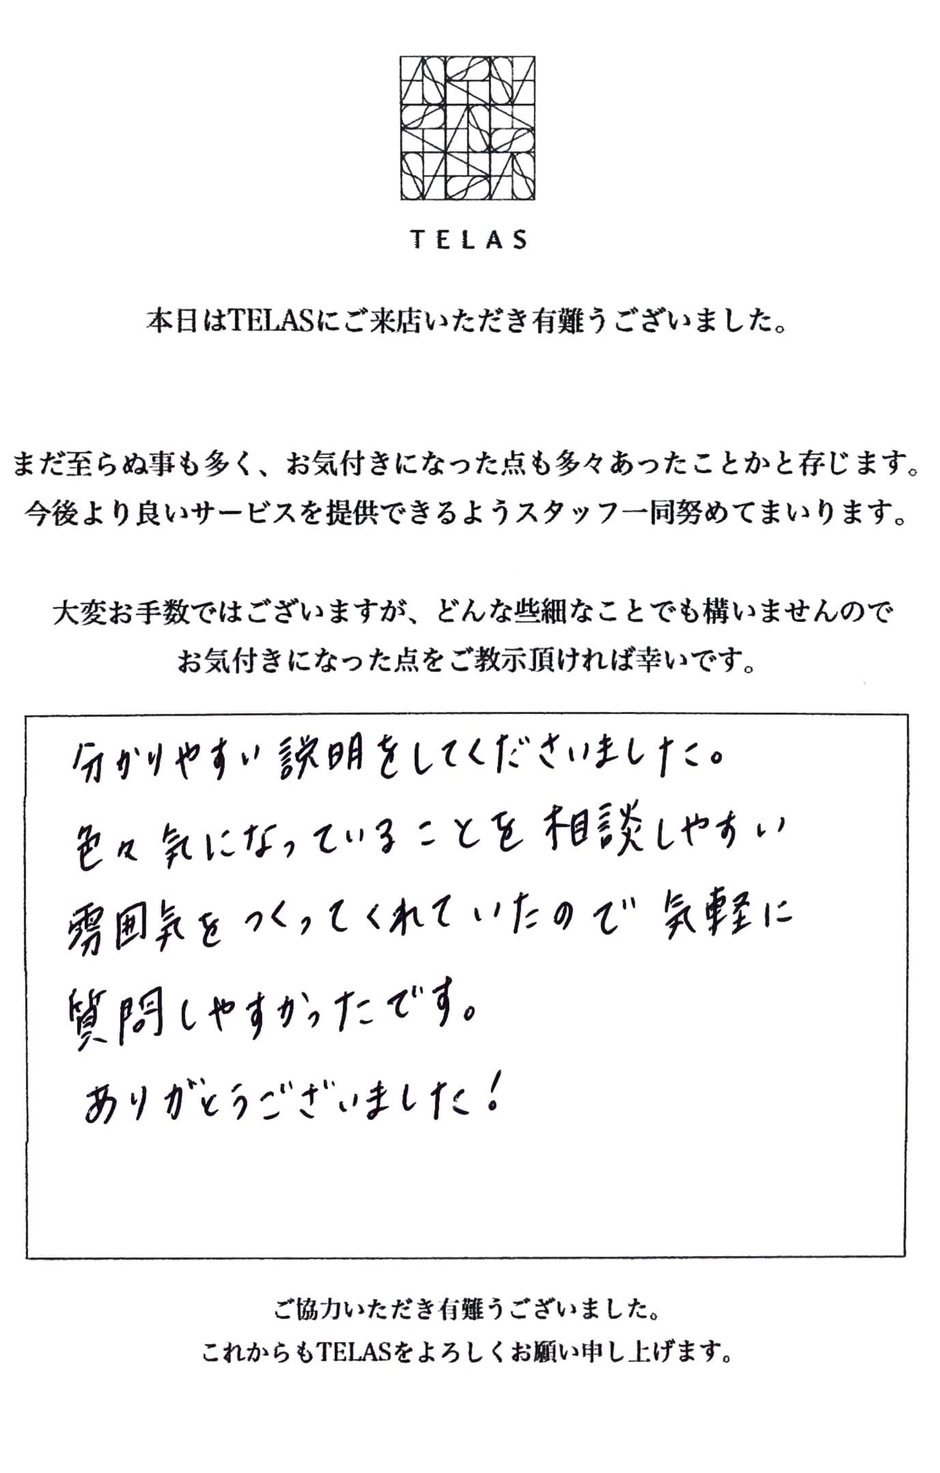 TELAS
本日はTELASにご来店いただき有難うございました。
まだ至らぬ事も多く、お気付きになった点も多々あったことかと存じます。
今後より良いサービスを提供できるようスタッフ一同努めてまいります。
大変お手数ではございますが、どんな些細なことでも構いませんので
お気付きになった点をご教示頂ければ幸いです。
分かりやすい説明をしてくださいました。
色々気になっていることを相談しやすい
雰囲気をつくってくれていたので気軽に
質問しやすかったです。
ありがとうございました!
ご協力いただき有難うございました。
これからもTELASをよろしくお願い申し上げます。